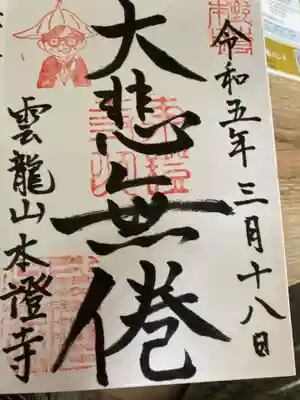 令和五年三月十八日
大悲無倦
雲龍山本證寺